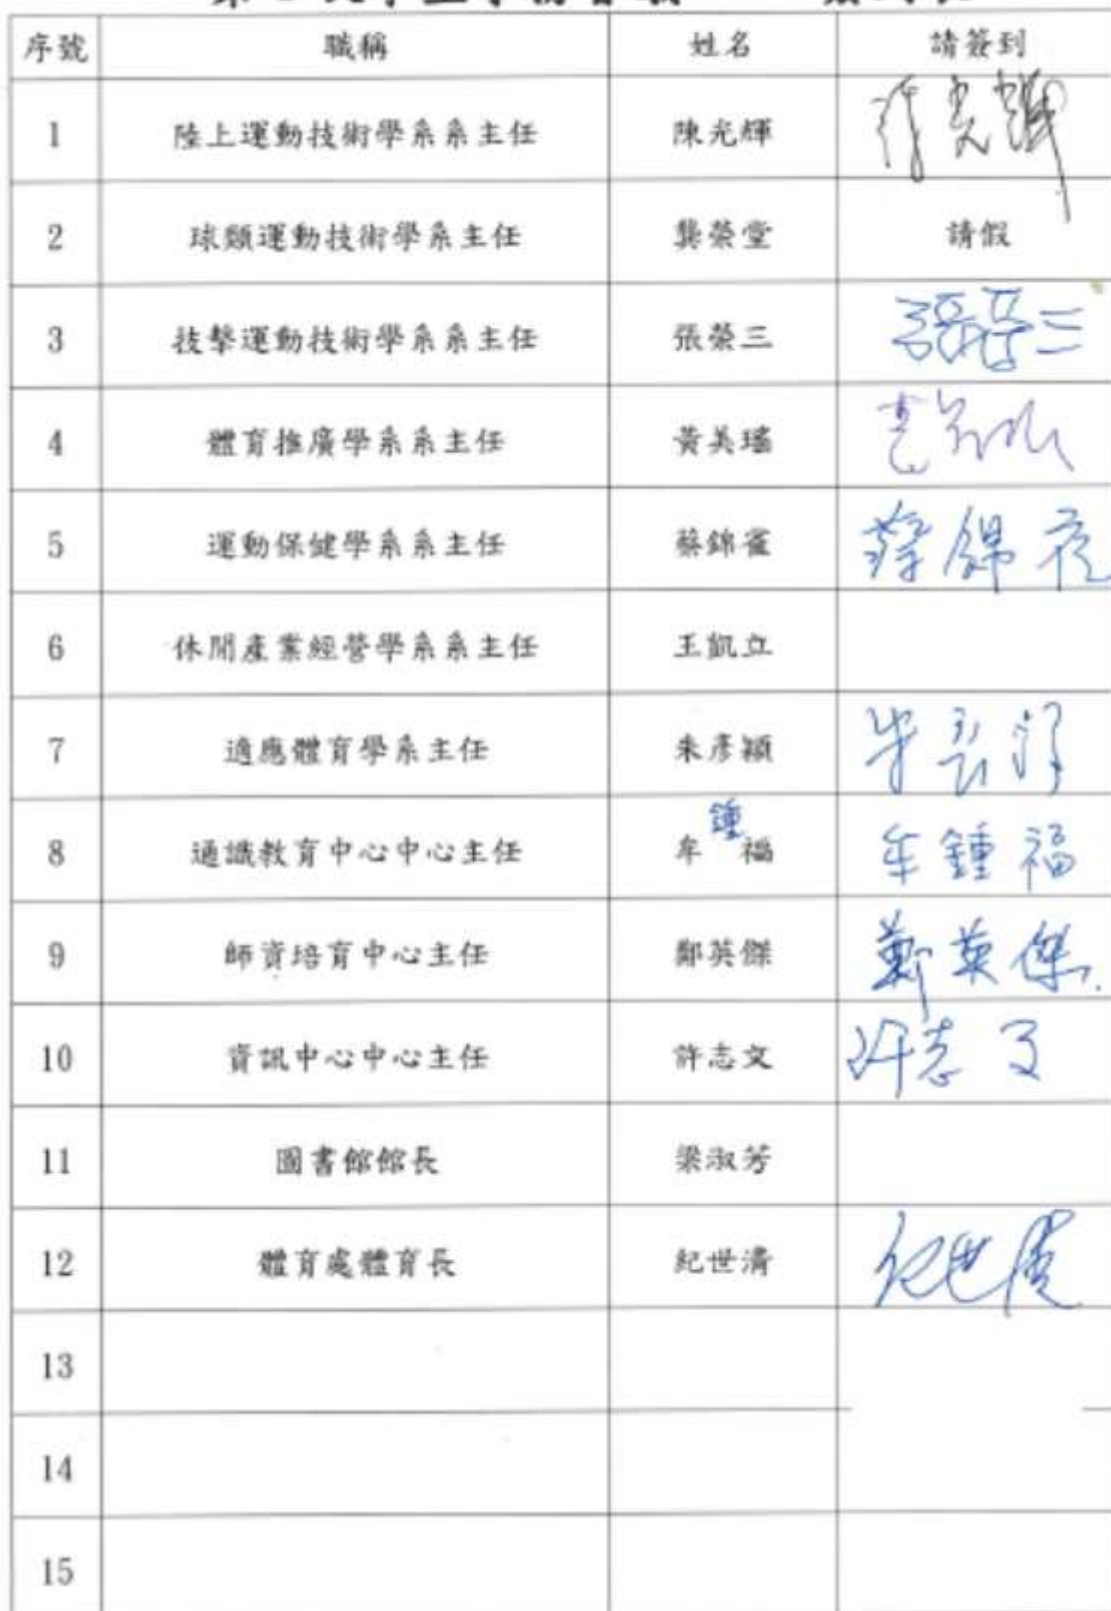 序號 職稱 姓名 請簽到
1 陸上運動技術學系系主任 陳光輝
2 球類運動技術學系主任 龔榮堂 請假
3 技擊運動技術學系系主任 張榮三 張榮三
4 體育推廣學系系主任 黃美瑤
5 運動保健學系系主任 蔡錦雀 蔡錦雀
6 休閒產業經營學系系主任 王凱立
7 適應體育學系主任 朱彥穎
8 通識教育中心中心主任 牟鍾福 牟鍾福
9 師資培育中心主任 鄭英傑 鄭英傑
10 資訊中心中心主任 許志文 許志文
11 圖書館館長 梁淑芳
12 體育處體育長 紀世清 紀世清
13
14
15